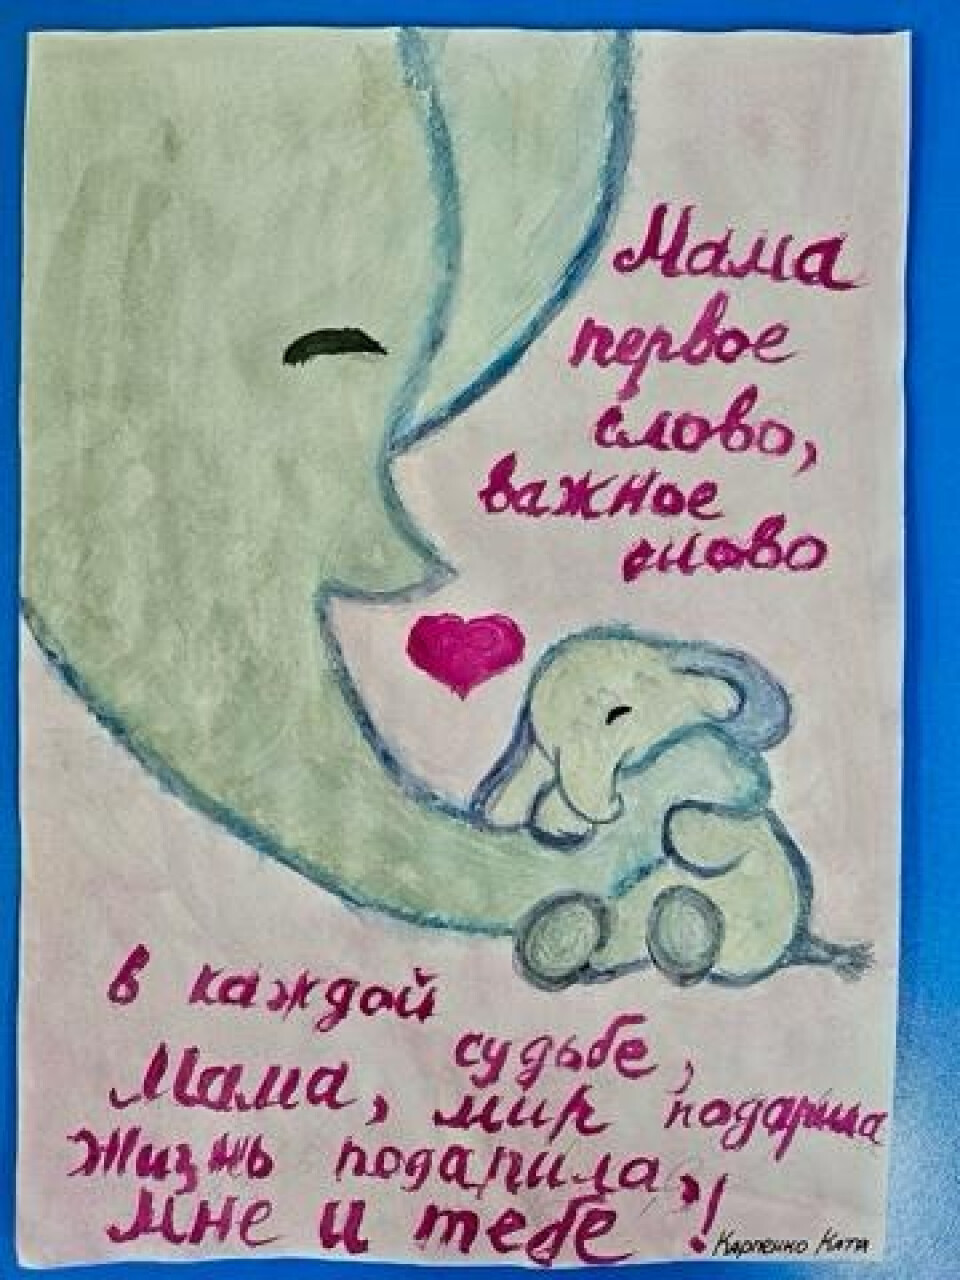 Мама
первое
слово,
важное
слово
в каждой
судьбе,
Мама, мир подарила
Жизнь подарила,
мне и тебе!
Карпенко Катя